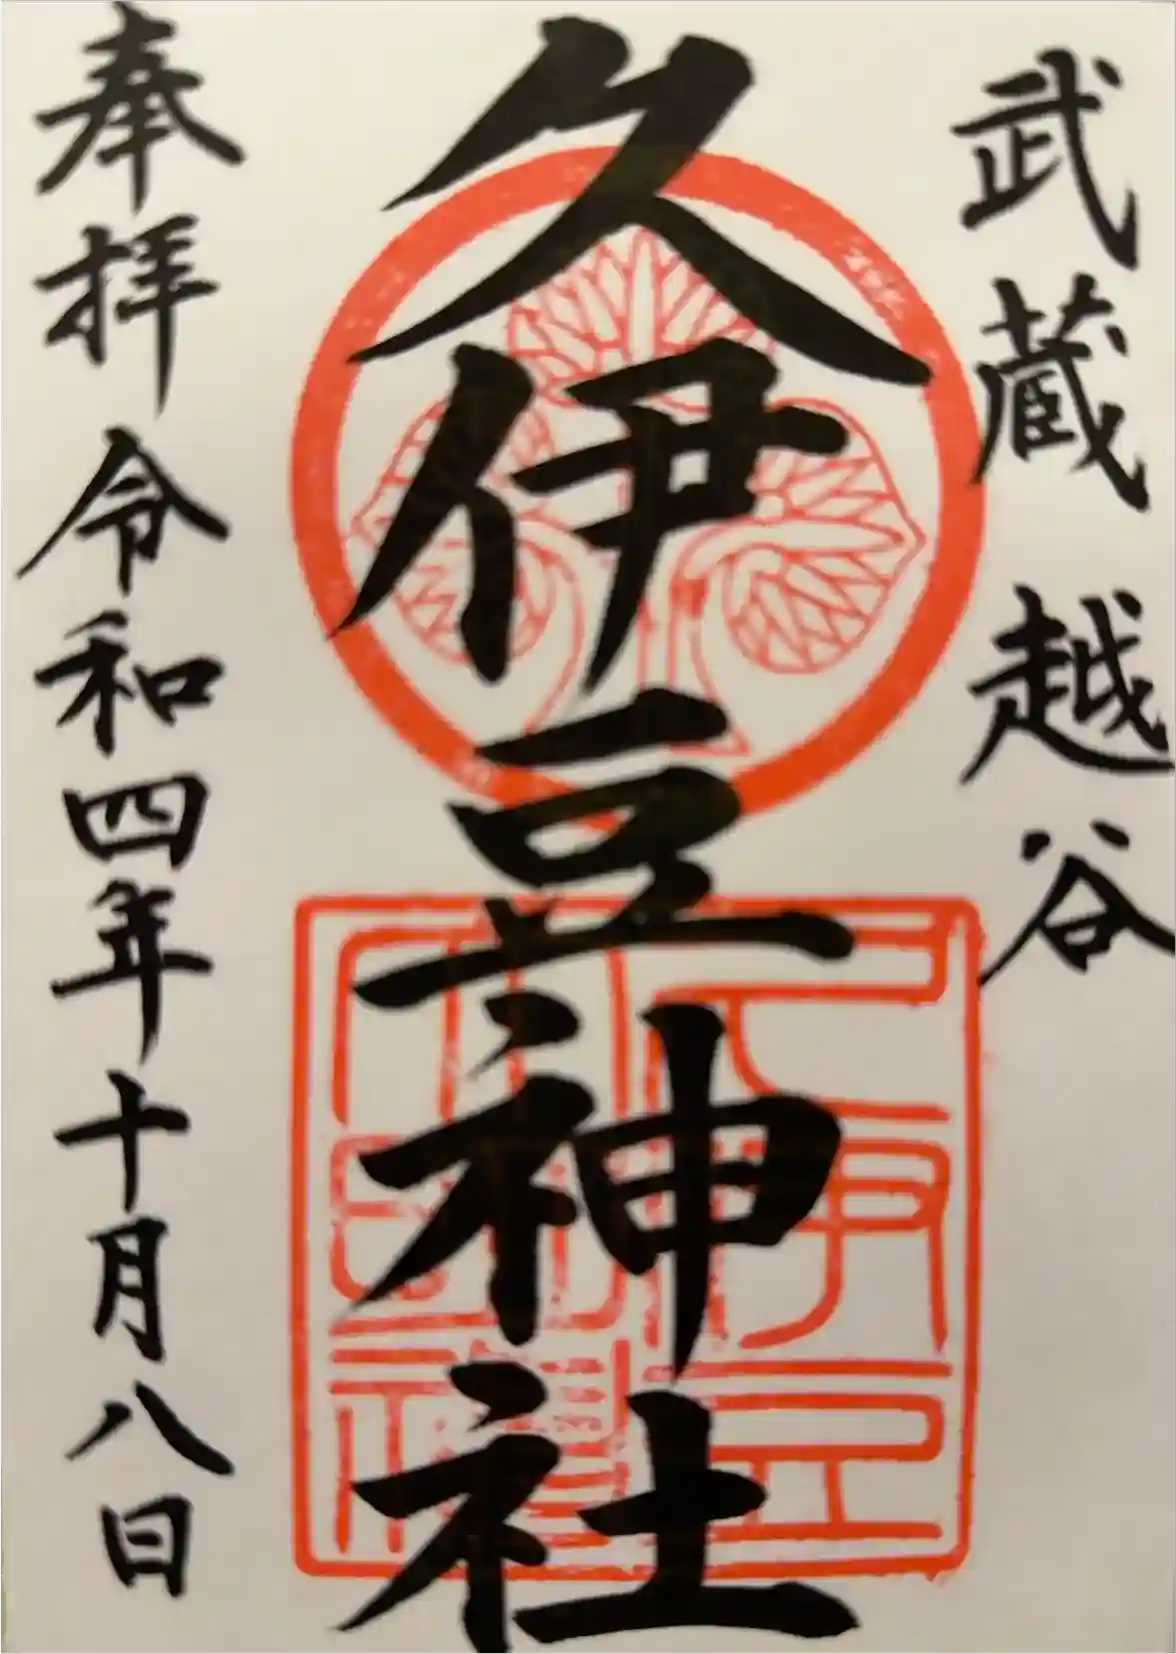 武蔵 越谷
久伊豆神社
奉拝 令和四年十月八日